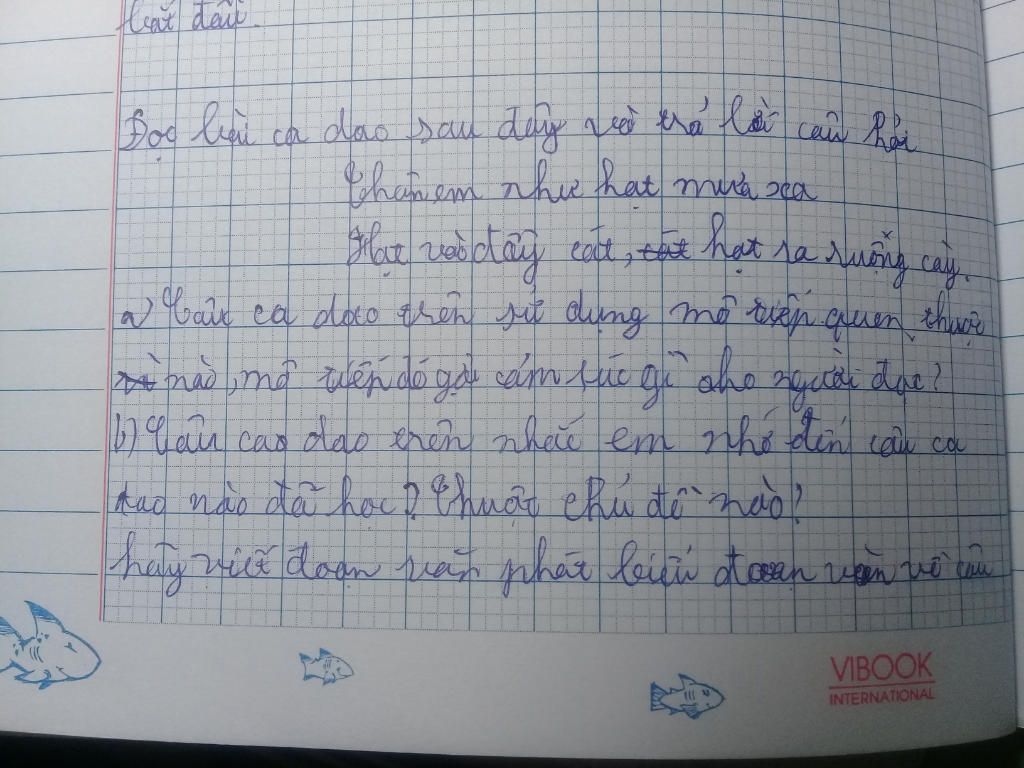 bắt đầu.
Đọc bài ca dao sau đây và trả lời câu hỏi
Thân em như hạt mưa xa
Hạt vào đầy cát, hạt ra ruộng cày.
a) Câu ca dao trên sử dụng mô tiếp quen thuộc
nào, mô tiếp đó gợi cảm xúc gì cho người đọc?
b) Câu cao dao trên nhắc em nhớ đến câu ca
dao nào đã học? Thuộc chủ đề nào?
hãy viết đoạn văn phát biểu đoạn văn về câu
VIBOOK
INTERNATIONAL